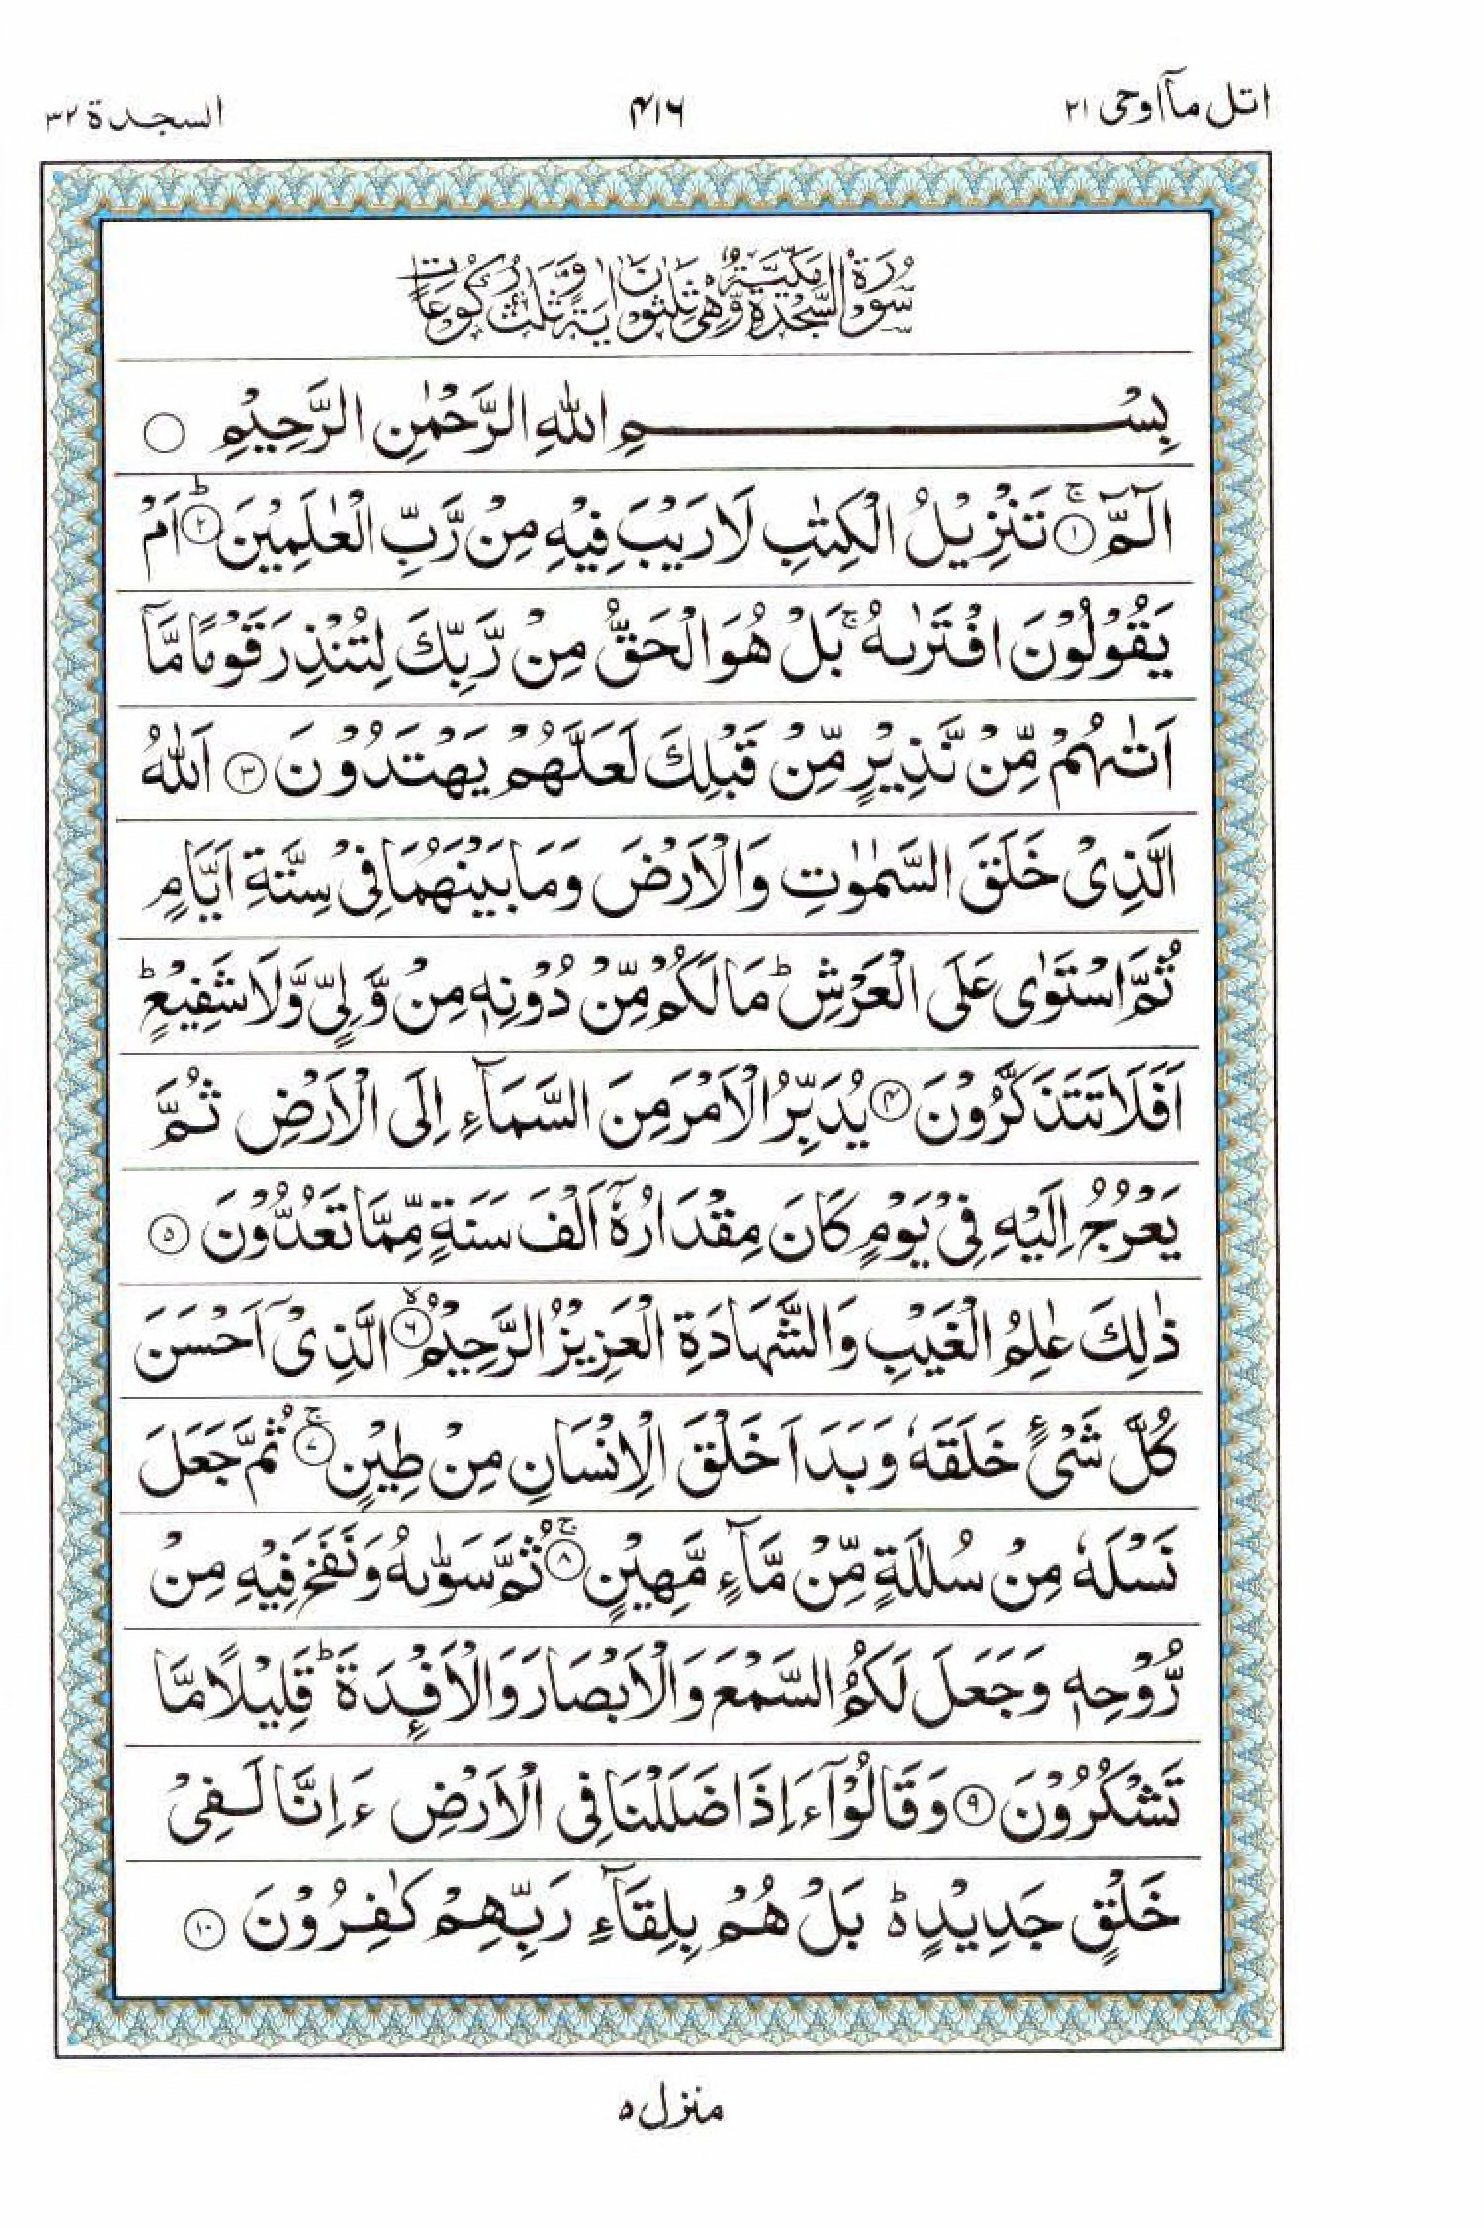 اتل مآ اوحی ۲۱ ۴۱۶ السجدة ۳۲
سُوْرَةُ السَّجْدَةِ مَكِّيَّةٌ وَّهِيَ ثَلٰثُوْنَ اٰيَةً وَّثَلٰثُ رُكُوْعَاتٍ
بِسْمِ اللهِ الرَّحْمٰنِ الرَّحِيْمِ ○
الٓمّٓ ۚ﴿۱﴾ تَنْزِيْلُ الْكِتٰبِ لَا رَيْبَ فِيْهِ مِنْ رَّبِّ الْعٰلَمِيْنَ ؕ﴿۲﴾ اَمْ
يَقُوْلُوْنَ افْتَرٰىهُ ۚ بَلْ هُوَ الْحَقُّ مِنْ رَّبِّكَ لِتُنْذِرَ قَوْمًا مَّاۤ
اَتٰىهُمْ مِّنْ نَّذِيْرٍ مِّنْ قَبْلِكَ لَعَلَّهُمْ يَهْتَدُوْنَ ﴿۳﴾ اَللهُ
الَّذِىْ خَلَقَ السَّمٰوٰتِ وَالْاَرْضَ وَمَا بَيْنَهُمَا فِىْ سِتَّةِ اَيَّامٍ
ثُمَّ اسْتَوٰى عَلَى الْعَرْشِ ؕ مَا لَكُمْ مِّنْ دُوْنِهٖ مِنْ وَّلِىٍّ وَّلَا شَفِيْعٍ ؕ
اَفَلَا تَتَذَكَّرُوْنَ ﴿۴﴾ يُدَبِّرُ الْاَمْرَ مِنَ السَّمَآءِ اِلَى الْاَرْضِ ثُمَّ
يَعْرُجُ اِلَيْهِ فِىْ يَوْمٍ كَانَ مِقْدَارُهٗۤ اَلْفَ سَنَةٍ مِّمَّا تَعُدُّوْنَ ﴿۵﴾
ذٰلِكَ عٰلِمُ الْغَيْبِ وَالشَّهَادَةِ الْعَزِيْزُ الرَّحِيْمُ ۙ﴿۶﴾ الَّذِىْۤ اَحْسَنَ
كُلَّ شَىْءٍ خَلَقَهٗ وَبَدَاَ خَلْقَ الْاِنْسَانِ مِنْ طِيْنٍ ۚ﴿۷﴾ ثُمَّ جَعَلَ
نَسْلَهٗ مِنْ سُلٰلَةٍ مِّنْ مَّآءٍ مَّهِيْنٍ ۚ﴿۸﴾ ثُمَّ سَوّٰىهُ وَنَفَخَ فِيْهِ مِنْ
رُّوْحِهٖ وَجَعَلَ لَكُمُ السَّمْعَ وَالْاَبْصَارَ وَالْاَفْـِٕدَةَ ؕ قَلِيْلًا مَّا
تَشْكُرُوْنَ ﴿۹﴾ وَقَالُوْۤا ءَاِذَا ضَلَلْنَا فِى الْاَرْضِ ءَاِنَّا لَفِىْ
خَلْقٍ جَدِيْدٍ ؕ۬ بَلْ هُمْ بِلِقَآءِ رَبِّهِمْ كٰفِرُوْنَ ﴿۱۰﴾
منزل ۵